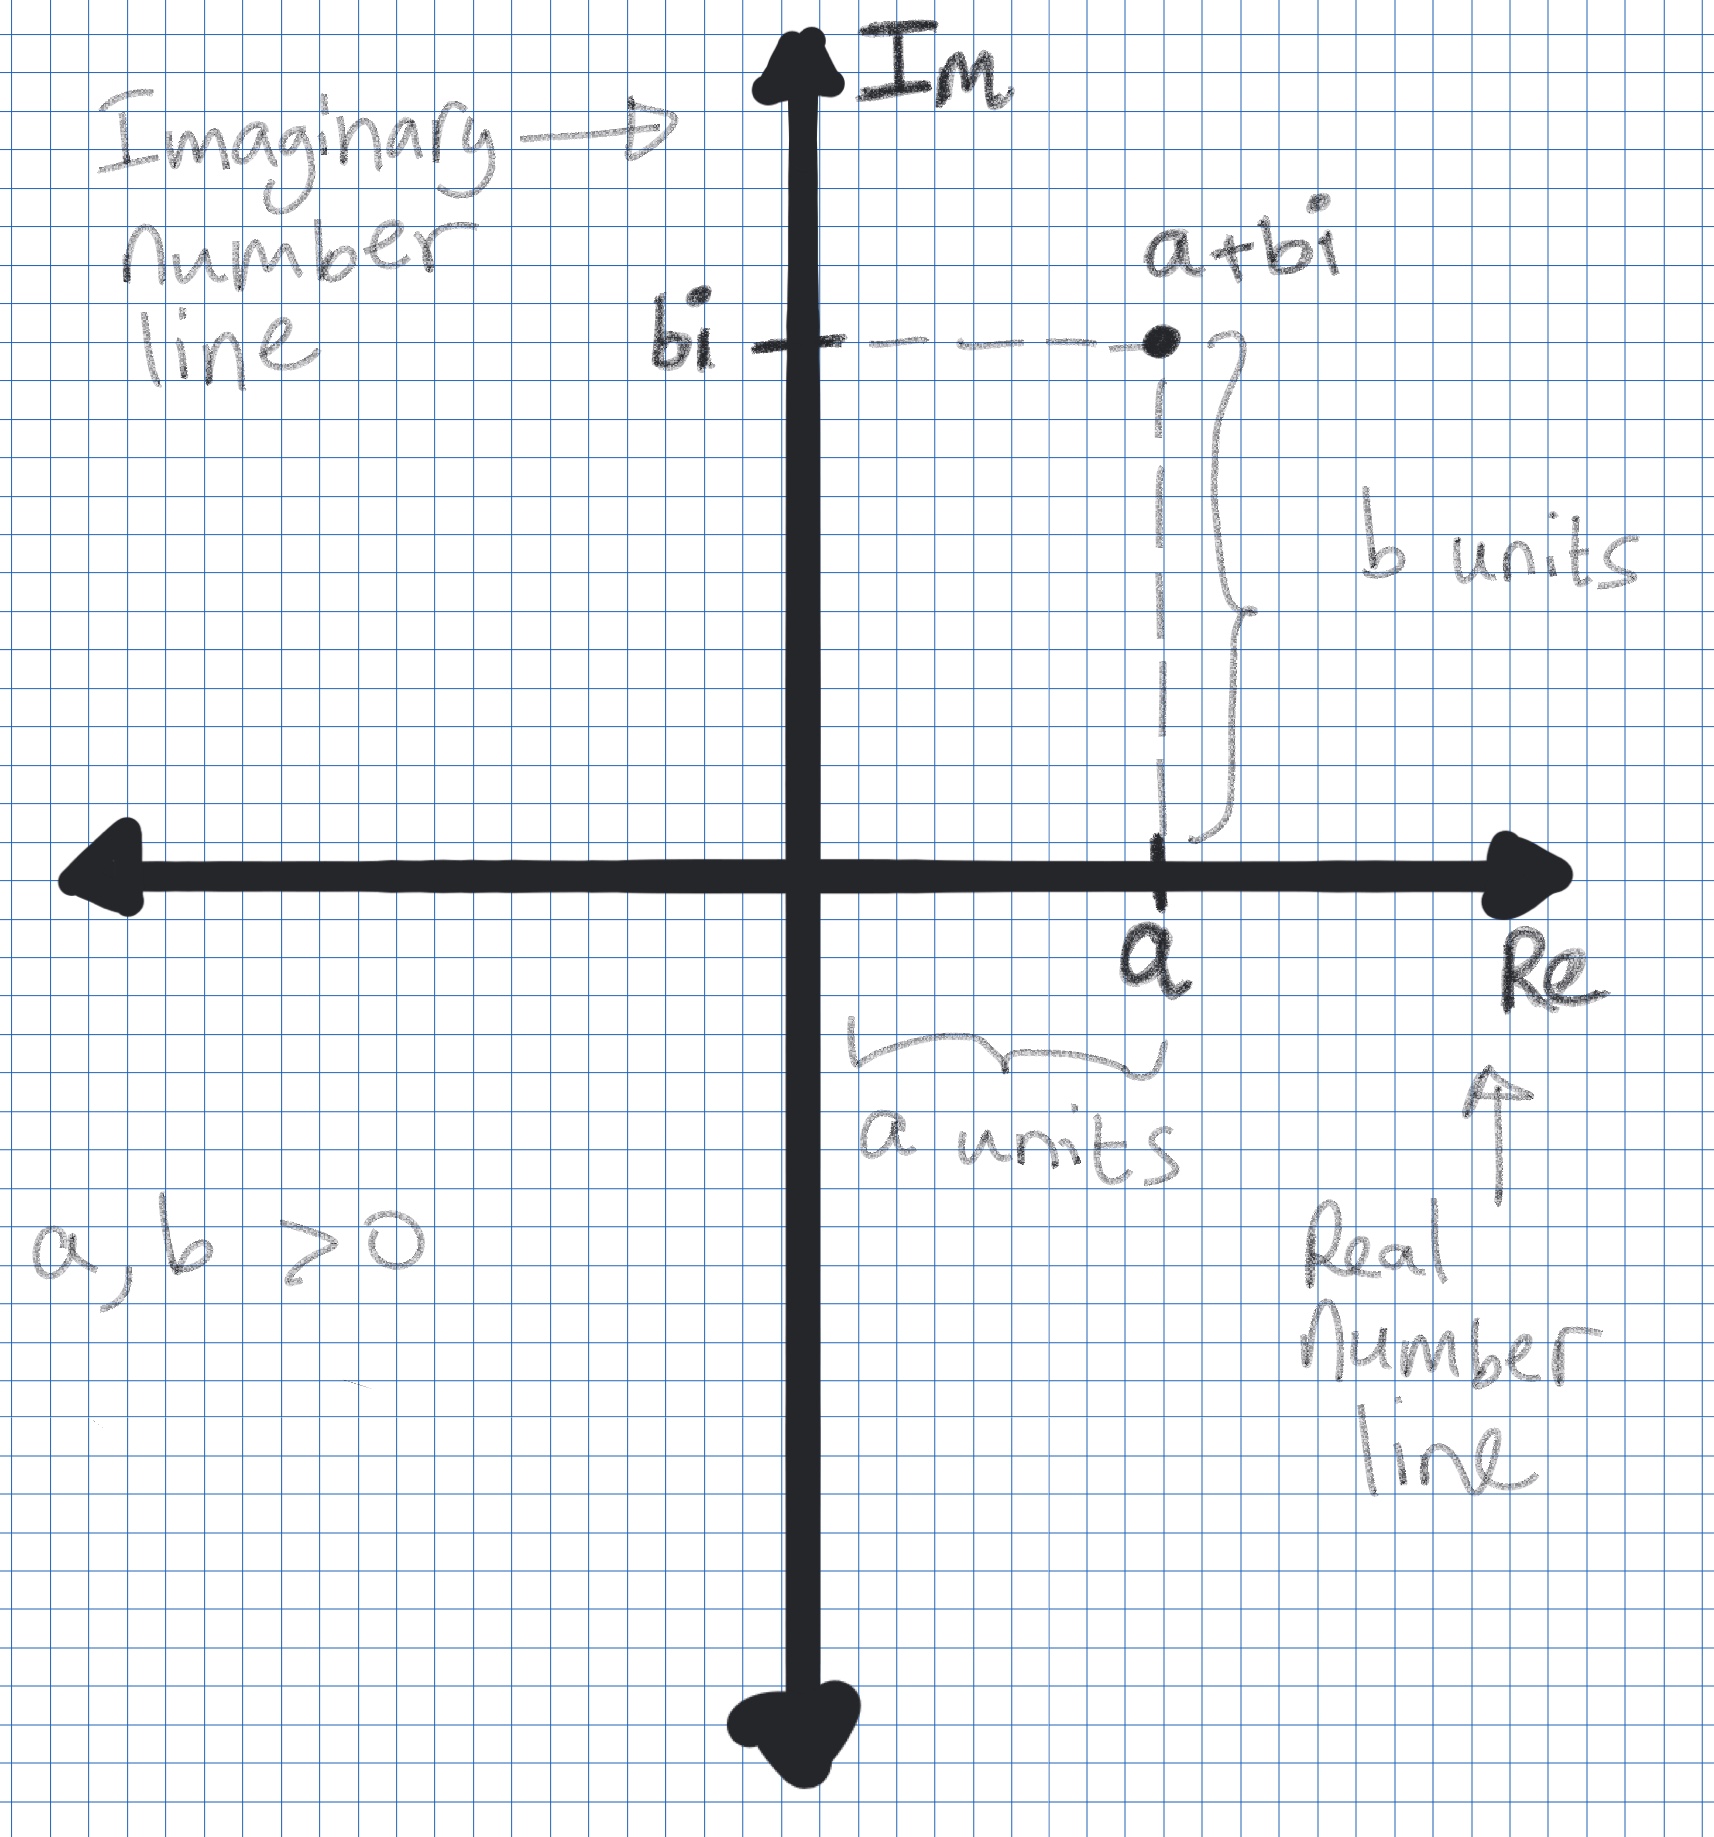 Im
Imaginary
number
line
a+bi
bi
b units
a
Re
a units
a, b >0
Real
number
line